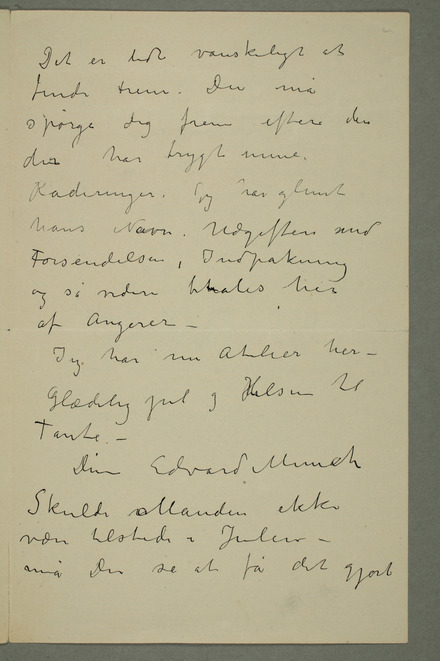 Det er lidt vanskeligt at
finde frem. Du må
spørge dig frem efter den
der har trygt mine
Raderinger. Jeg har glemt
hans Navn. Udgiften med
Forsendelsen, Indpakning
og så videre betales her
af Angerer –
Jeg har nu Atelier her –
Glædelig jul og Hilsen til
Tante. –
Din Edvard Munch
Skulde Manden ikke
være tilstede i Julen –
må Du se at få det gjort